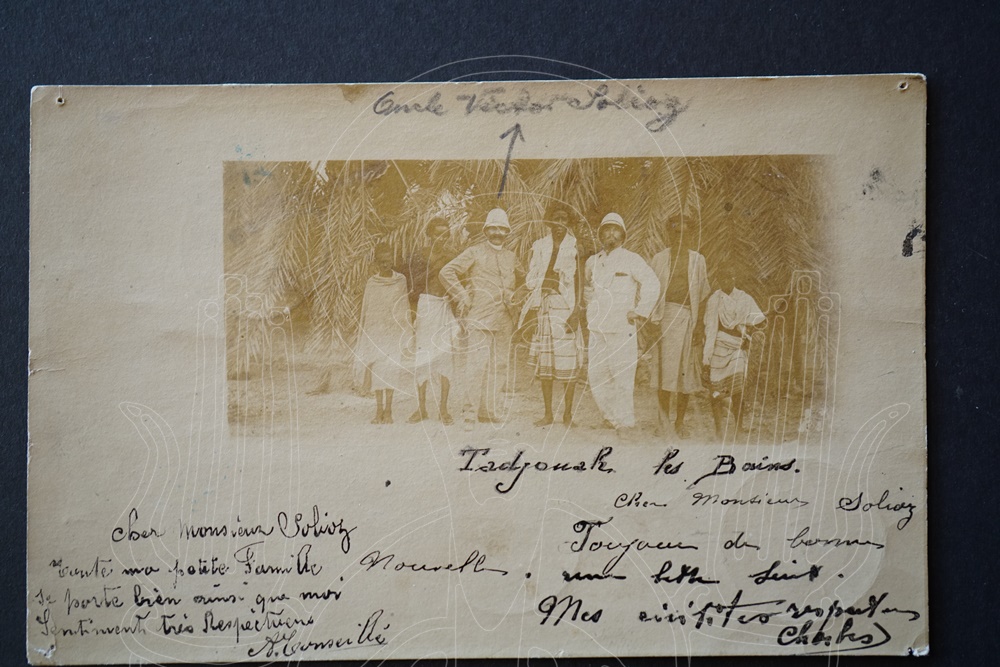 Oncle Victor Solioz
Tadjourah les Bains.
Cher Monsieur Solioz
Toujours de bonnes
Nouvelles. une lettre suit.
Mes respectueux
Charles
Cher Monsieur Solioz
Toute ma petite Famille
se porte bien ainsi que moi
Sentiments très Respectueux
A. Conseillé